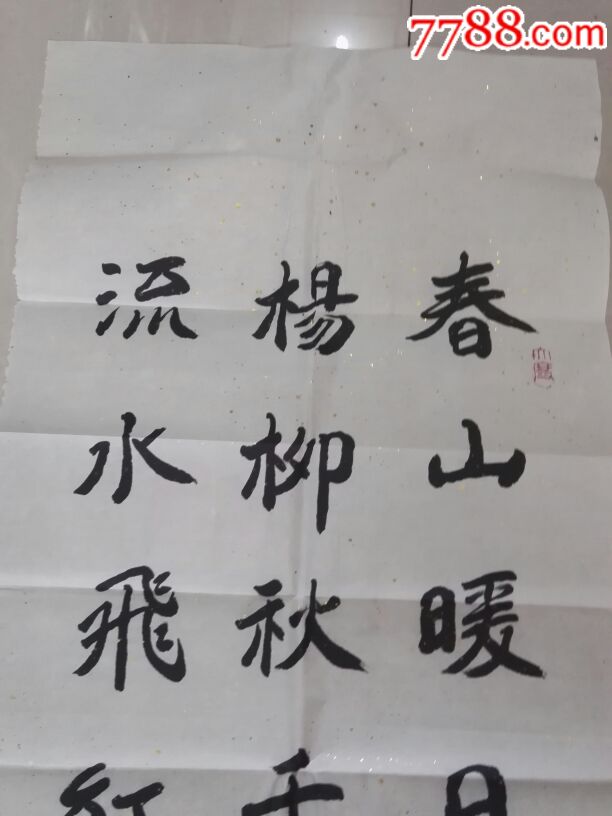 7788.com
春山暖日
楊柳秋千
流水飛紅